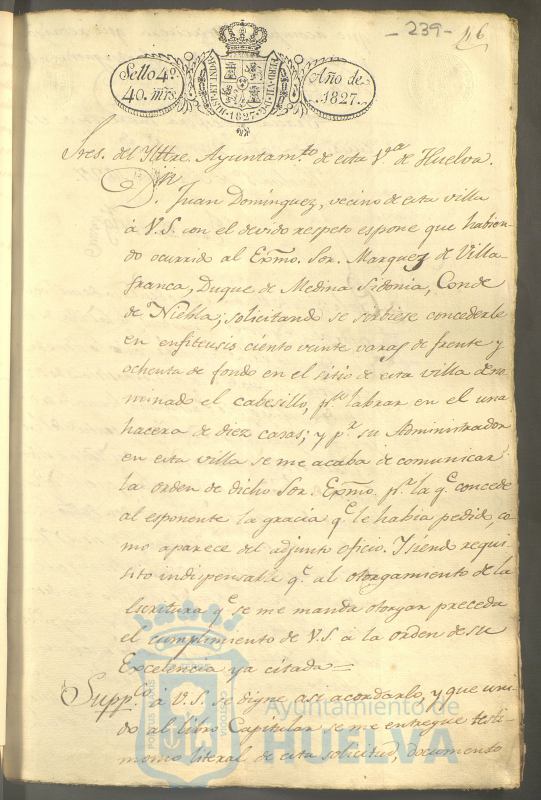 - 239 -
46
Sello 4º
40. mrs.
HISPAN. 1827.
Año de
1827.
Sres. del Ylltre. Ayuntam.to de esta V.a de Huelva.
D.n Juan Domínguez, vecino de esta villa
á V.S. con el devido respeto espone que habien-
do ocurrido al Exmo. Sor. Marquez de Villa-
franca, Duque de Medina Sidonia, Conde
de Niebla; solicitando se sirbiese concederle
en enfiteusis ciento veinte varas de frente y
ochenta de fondo en el sitio de esta villa deno-
minado el cabesillo, p.a labrar en el una
hacera de diez casas; y p.r su Administrador
en esta villa se me acaba de comunicar
la orden de dicho Sor. Exmo. p.r la q.e concede
al esponente la gracia q.e le habia pedido, co-
mo aparece del adjunto oficio. Y siendo requi-
sito indispensable q.e al otorgamiento de la
Escritura q.e se me manda otorgar preceda
el cumplimiento de V.S. á la orden de su
Excelencia ya citada=
Supp.co á V.S. se digne asi acordarlo, y que uni-
do al libro Capitular se me entregue testi-
monio literal de esta solicitud, documento
PORTUS MARIS
CUSTODIA
Ayuntamiento de
HUELVA